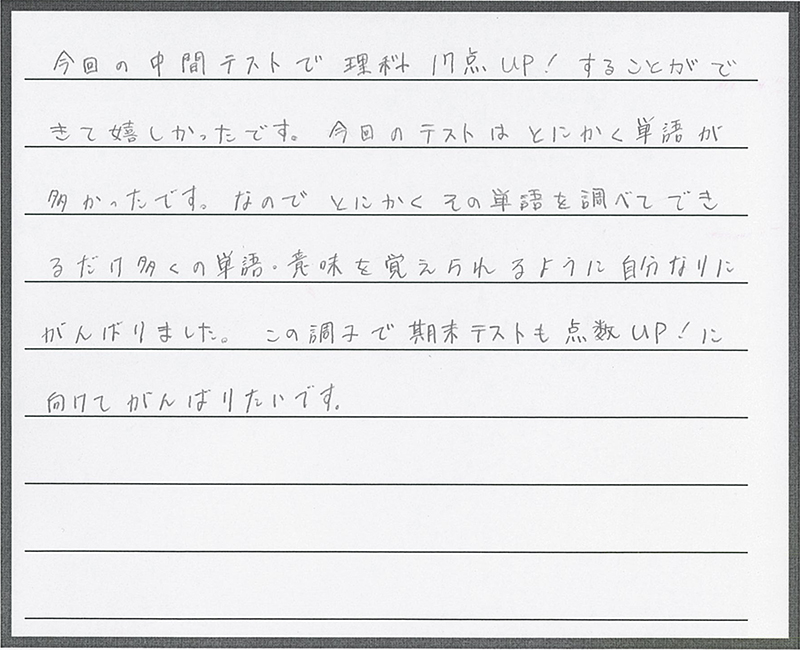 今回の中間テストで理科17点UP!することがで
きて嬉しかったです。今回のテストはとにかく単語が
多かったです。なのでとにかくその単語を調べてでき
るだけ多くの単語・意味を覚えられるように自分なりに
がんばりました。この調子で期末テストも点数UP!に
向けてがんばりたいです。